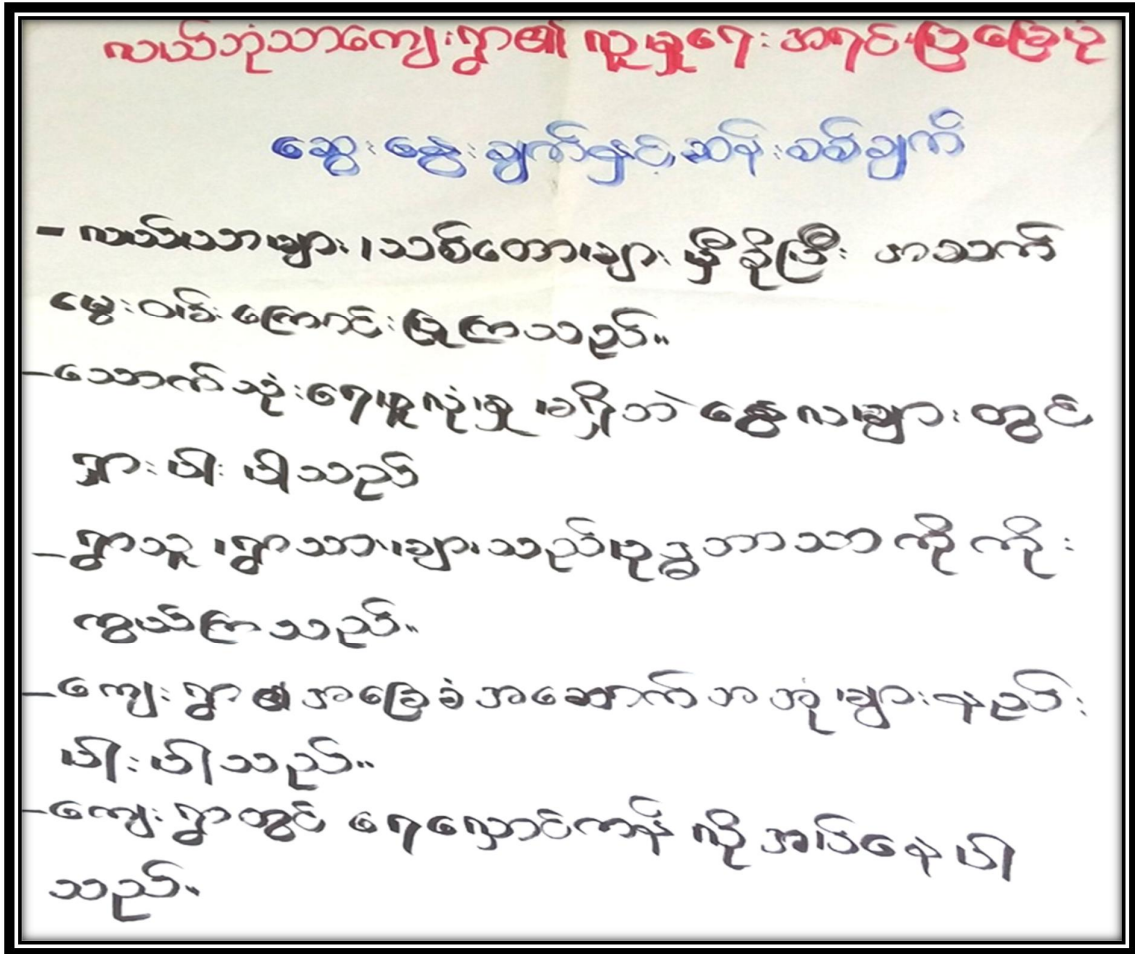 လယ်ဘုံသာကျေးရွာ၏ လူမှုရေး အရင်းပြမြေပုံ
ဆွေးနွေးချက်နှင့်ဆန်းစစ်ချက်
- လယ်ယာများ၊သစ်တောများ မှီခိုပြီး အသက်
မွေးဝမ်းကြောင်းပြုကြသည်။
-သောက်သုံးရေဖူလုံမှု မရှိဘဲ နွေလများတွင်
ရှားပါးပါသည်
-ရွာသူ၊ရွာသားများသည်ဗုဒ္ဓဘာသာကိုကိုး
ကွယ်ကြသည်။
-ကျေးရွာ၏အခြေခံအဆောက်အအုံများနည်း
ပါးပါသည်။
-ကျေးရွာတွင် ရေလှောင်ကန် လိုအပ်နေပါ
သည်။